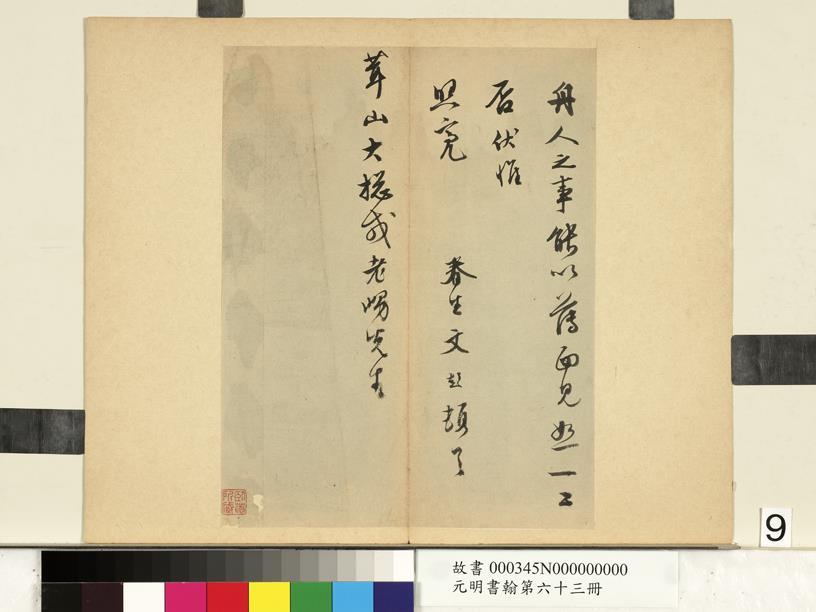 舟人之事能以舊面見恕一二
否伏惟
照亮
眷生文彭頓首
茸山大總戎老甥先生
9
故書 000345N000000000
元明書翰第六十三冊